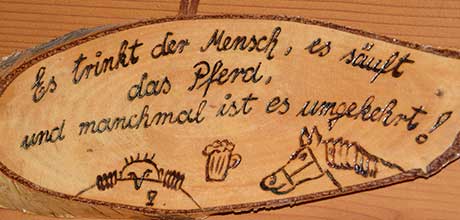 Es trinkt der Mensch, es säuft
das Pferd,
und manchmal ist es umgekehrt!